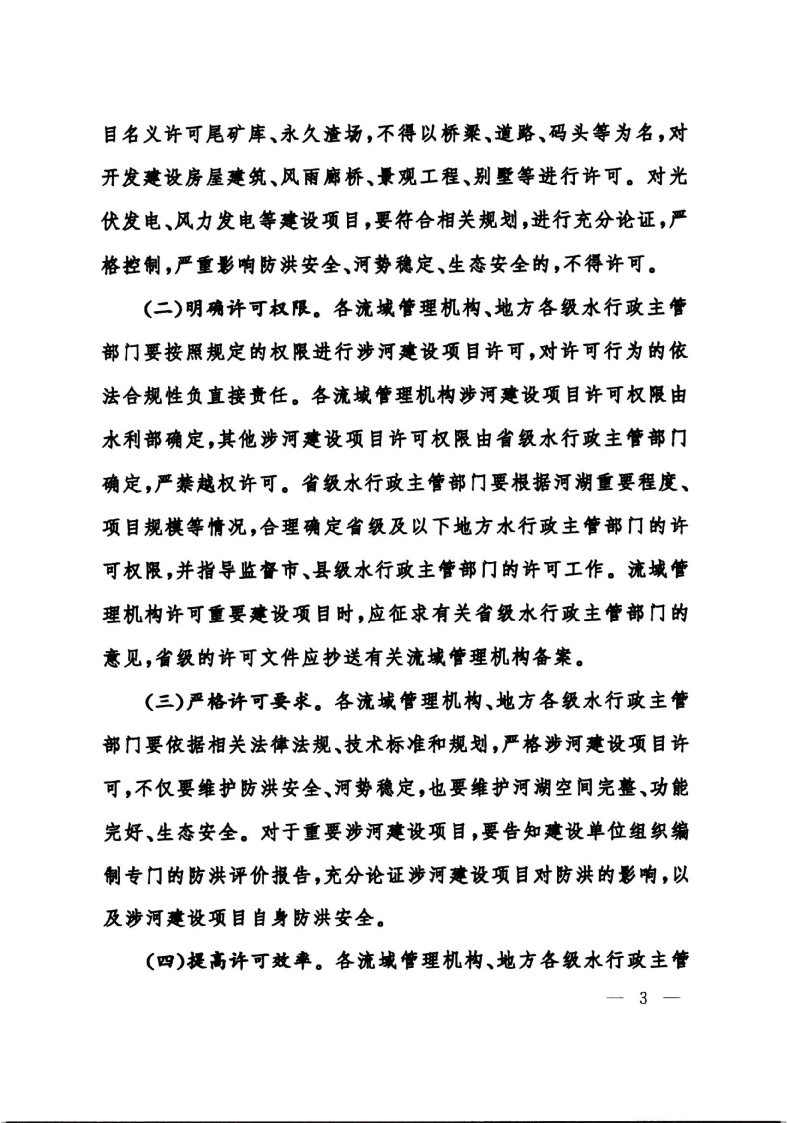 目名义许可尾矿库、永久渣场,不得以桥梁、道路、码头等为名,对
开发建设房屋建筑、风雨廊桥、景观工程、别墅等进行许可。对光
伏发电、风力发电等建设项目,要符合相关规划,进行充分论证,严
格控制,严重影响防洪安全、河势稳定、生态安全的,不得许可。
(二)明确许可权限。各流域管理机构、地方各级水行政主管
部门要按照规定的权限进行涉河建设项目许可,对许可行为的依
法合规性负直接责任。各流域管理机构涉河建设项目许可权限由
水利部确定,其他涉河建设项目许可权限由省级水行政主管部门
确定,严禁越权许可。省级水行政主管部门要根据河湖重要程度、
项目规模等情况,合理确定省级及以下地方水行政主管部门的许
可权限,并指导监督市、县级水行政主管部门的许可工作。流域管
理机构许可重要建设项目时,应征求有关省级水行政主管部门的
意见,省级的许可文件应抄送有关流域管理机构备案。
(三)严格许可要求。各流域管理机构、地方各级水行政主管
部门要依据相关法律法规、技术标准和规划,严格涉河建设项目许
可,不仅要维护防洪安全、河势稳定,也要维护河湖空间完整、功能
完好、生态安全。对于重要涉河建设项目,要告知建设单位组织编
制专门的防洪评价报告,充分论证涉河建设项目对防洪的影响,以
及涉河建设项目自身防洪安全。
(四)提高许可效率。各流域管理机构、地方各级水行政主管
— 3 —